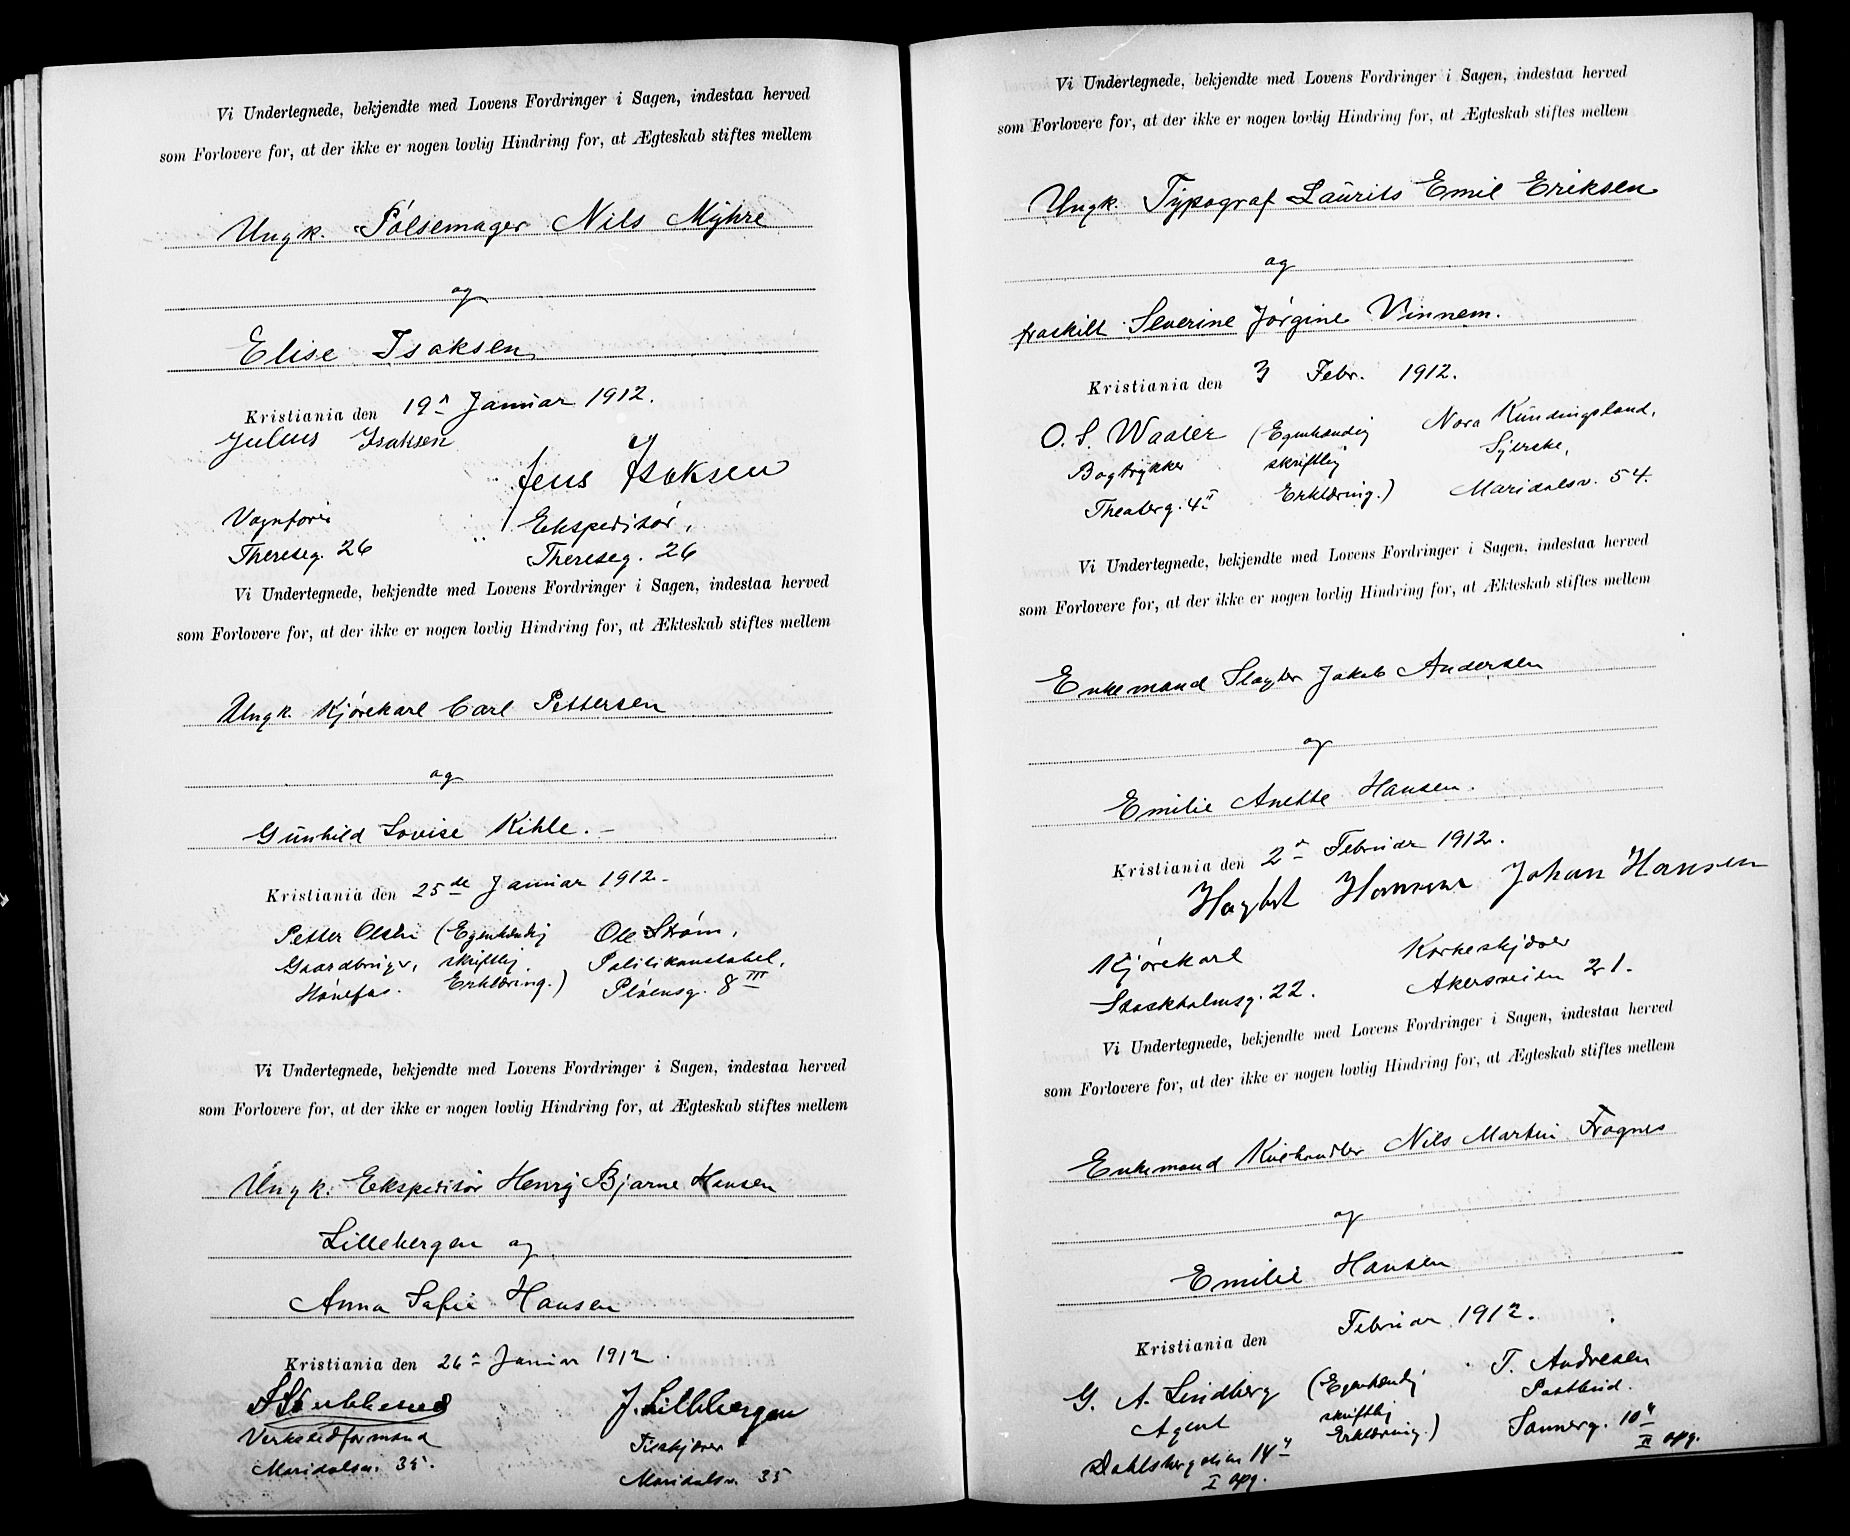 Vi Undertegnede, bekjendte med Lovens Fordringer i Sagen, indestaa herved
som Forlovere for, at der ikke er nogen lovlig Hindring for, at Ægteskab stiftes mellem
Ungk. Pølsemager Nils Myhre
og
Elise Isaksen
Kristiania den 19n Januar 1912.
Julius Isaksen
Jens Isaksen
Vognfører Ekspeditør,
Thereseg. 26 Thereseg. 26
Vi Undertegnede, bekjendte med Lovens Fordringer i Sagen, indestaa herved
som Forlovere for, at der ikke er nogen lovlig Hindring for, at Ækteskab stiftes mellem
Ungk. Kjørekarl Carl Pettersen
og
Gunhild Lovise Kihle.
Kristiania den 25de Januar 1912
Petter Olsen (Egenhændig Ole Strøm,
Gaardbruger, skriftlig Politikonstabel,
Hønefos. Erklæring.) Pløensg. 8 III
Vi Undertegnede, bekjendte med Lovens Fordringer i Sagen, indestaa herved
som Forlovere for, at der ikke er nogen lovlig Hindring for, at Ægteskab stiftes mellem
Ungk. Ekspeditør Henry Bjarne Hansen
Lillebergen og
Anna Sofie Hansen
Kristiania den 26n Januar 1912.
J. Lillebergen
Verkstedformand
Maridalsv. 35. Maridalsv. 35
Vi Undertegnede, bekjendte med Lovens Fordringer i Sagen, indestaa herved
som Forlovere for, at der ikke er nogen lovlig Hindring for, at Ægteskab stiftes mellem
Ungk. Typograf Laurits Emil Eriksen
og
fraskilt Severine Jørgine Vinnem.
Kristiania den 3 Febr. 1912.
O. S. Waaler (Egenhændig Nora Kundingsland,
Bogtrykker skriftlig Syerske,
Theaterg. 4 II Erklæring.) Maridalsv. 54.
Vi Undertegnede, bekjendte med Lovens Fordringer i Sagen, indestaa herved
som Forlovere for, at der ikke er nogen lovlig Hindring for, at Ækteskab stiftes mellem
Enkemand Slagter Jakob Andersen
og
Emilie Anette Hansen.
Kristiania den 2n Februar 1912.
Hagbt Hansen Johan Hansen
Kjørekarl Korkeskjærer
Stockholmsg. 22. Akersveien 21.
Vi Undertegnede, bekjendte med Lovens Fordringer i Sagen, indestaa herved
som Forlovere for, at der ikke er nogen lovlig Hindring for, at Ægteskab stiftes mellem
Enkemand Kulhandler Nils Martin Fragnes
og
Emilie Hansen
Kristiania den Februar 1912.
G. A. Lindberg (Egenhændig T. Andresen
Agent skriftlig Postbud.
Dahlsbergstien 14 Erklæring.) Sannerg. 10
I opg. II opg.